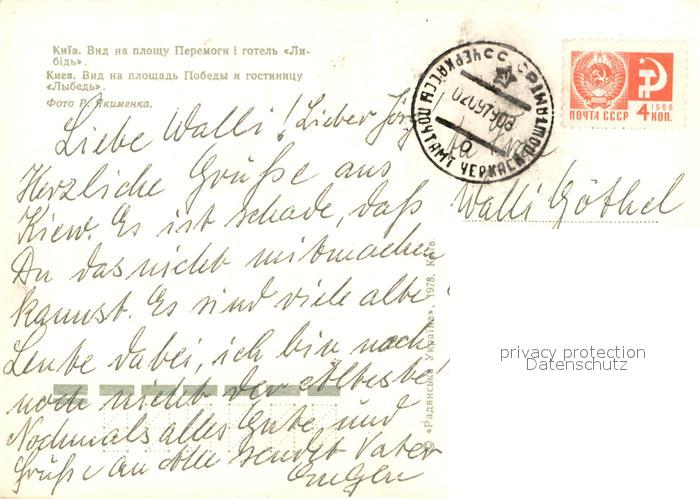 Київ. Вид на площу Перемоги і готель «Ли-
бідь».
Киев. Вид на площадь Победы и гостиницу
«Лыбедь».
Фото Р. Якименка.
Liebe Walli! Lieber Jörg
Herzliche Grüße aus
Kiew. Es ist schade, daß
Du das nicht mitmachen
kannst. Es sind viele alte
Leute dabei, ich bin noch
nicht der Älteste!
Nochmals alles Gute, und
Grüße an alle sendet Vater
Walli Göthel
© «Радянська Україна», 1978, Київ.
ПОЧТАМТ ЧЕРКАССЫ
ПОЧТА СССР
1966
4 КОП.
privacy protection
Datenschutz